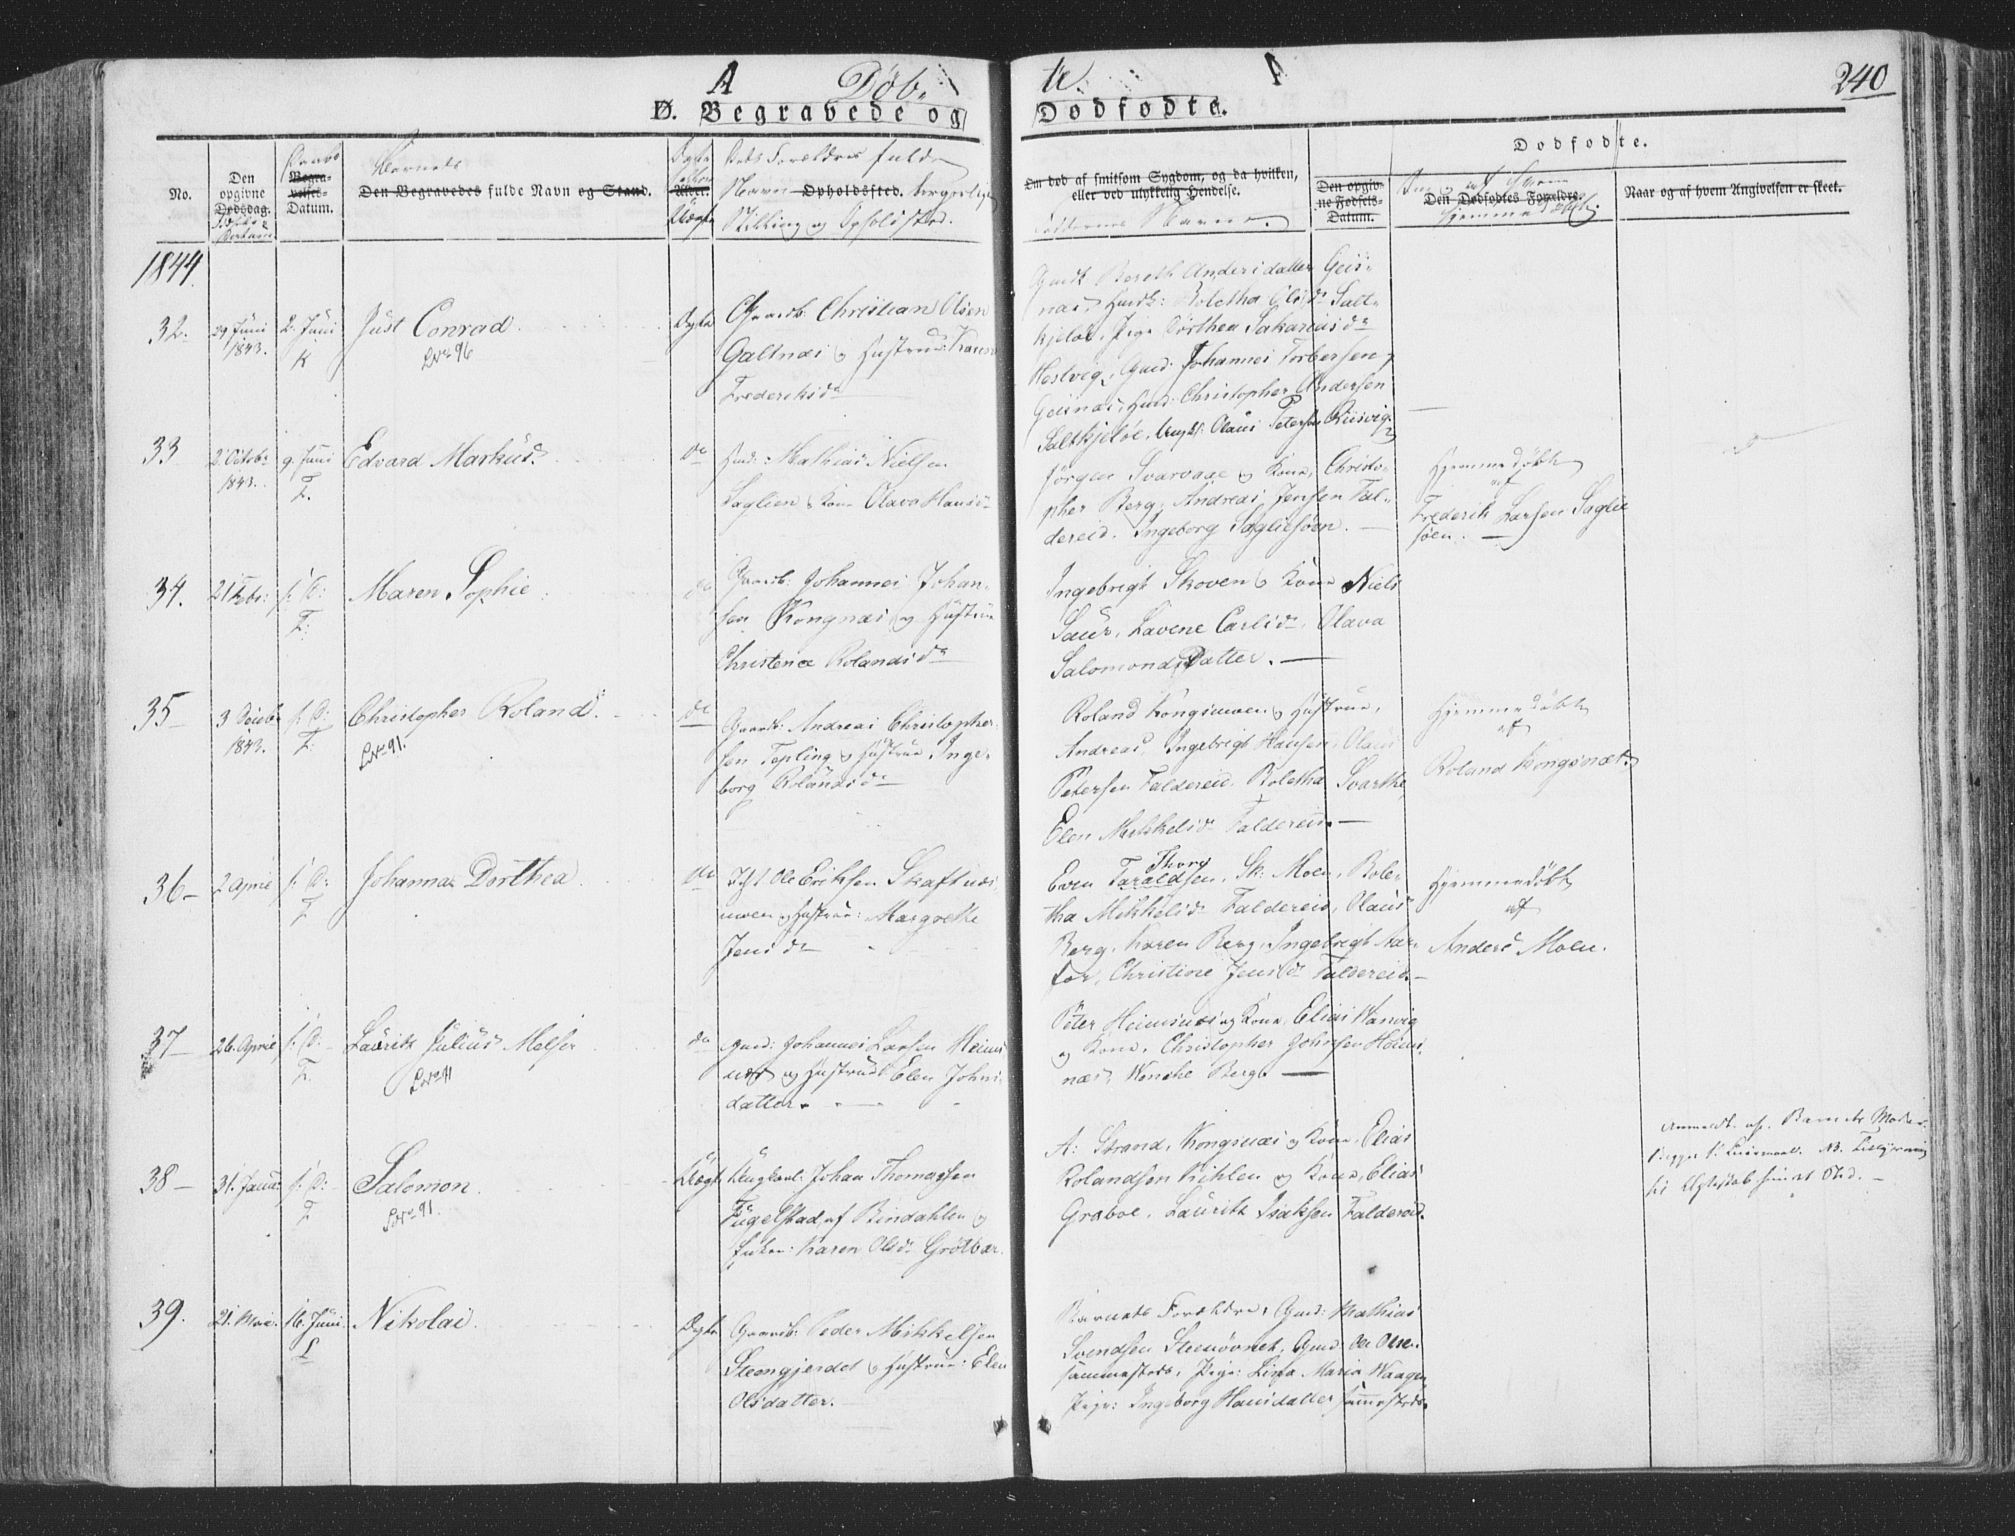 A Døb. te. A
240
D. Begravede og Dødfødte.
Dødfødte.
No.
Den opgivne Dødsdag.
Daabs
Begravelses-Datum.
Barnets
Den Begravedes fulde Navn og Stand.
Alder.
Dets Forældres fulde
Navn Opholdssted. borgerlige
Stilling og Opholdssted.
Om død af smitsom Sygdom, og da hvilken, eller ved ulykkelig Hendelse.
Faddernes Navne.
Den opgivne Fødsels-Datum.
Den Dødfødtes Forældre.
Naar og af hvem Angivelsen er skeet.
1844.
32.
29 Juni
1843.
2. Juni
K
Just Conrad.
No 96
Ægte
Gaardb. Christian Olsen
Galtnæs og Hustrue Karen
Frederiksdr
Gmdk Bereth Andersdatter Geis-
næs, Hmdk: Boletha Olsdr Salt-
kjeløe, Pige Dorthea Sakariasdr
Hestvig, Gmd: Johannes Torbersen
Geisnæs, Hmd: Christopher Andersen
Saltkjeløe, Ungk: Olaus Petersen Riisvig.
33
2. Octobr
1843.
9. Juni
F.
Edvard Markus.
do
Hmd: Mathias Nielsen
Saglien, Kone Olava Hansdr
Jörgen Svarvaae og Kone, Christo-
pher Berg, Andreas Jensen Fal-
dereid. Ingeborg Sagliesöen.
Hjemmedøbt
af
Frederik Larsen Saglie
söen.
34.
21 Febr:
s. D:
F:
Maren Sophie.
do
Gaardb: Johannes Johan-
sen Kongnæs og Hustrue
Christence Rolandsdr
Ingebrigt Skoven og Kone Niels
Saur, Lavene Carlsdr, Olava
Salomons Datter.
35
3 Decbr
1843.
s. D:
F:
Christopher Roland.
No 91.
do
Gaardb: Andreas Christopher-
sen Tepling og Hustrue Inge-
borg Rolandsdr
Roland Kongsmoen og Hustrue,
Andreas, Ingebrigt Hansen, Olaus
Petersen Faldereid, Boletha Svarthe,
Elen Mikkelsdr Faldereid.
Hjemmedøbt
af
Roland Kongsmoe
36
2 April
s. D:
F
Johanna Dorthea.
do
Ole Eriksen Skaftnæs-
moen og Hustrue: Margrethe
Jensdr
Thorg
Even Taraldsen, Sk: Moen, Bole-
tha Mikkelsdr Faldereid, Olaus
Berg, Karen Berg, Ingebrigt Aar-
for, Christine Jensdr Faldereid.
Hjemmedøbt
af
Anders Moen.
37
26. April
s. D:
F.
Lauritz Julius Melser
No 91
do
Gmd: Johannes Larsen Heims-
næs og Hustrue Elen Johns-
datter.
Peter Heimsnæs og Kone, Elias Warvig
og Kone, Christopher Johnsen Heims-
næs, Wenche Berg.
38
31. Janu
s. D:
F
Salomon
No 91.
Uægte
Ungkarl: Johan Thomassen
Fugelstad af Bindahlen og
Karen Olsdr Grötbær.
A: Strand, Kongsnæs og Kone, Elias
Rolandsen Kihlen og Kone, Elias
Graboe, Lauritz Isaksen Faldereid.
Anmeldt af Barnets Moder.
39.
21. Mai.
16. Juni
L
Nikolai.
Ægte
Gaardb: Peder Mikkelsen
Steengjerdet og Hustrue: Elen
Olsdatter.
Barnets Forældre, Gmd: Mathias
Svendsen Steenövnet, Gmd Ole Olsen
sammesteds, Pige: Lisa Maria Waagen,
Pige: Ingeborg Hansdatter sammesteds.